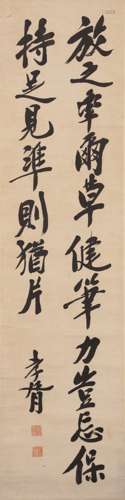 放之牽爾草健筆力豈忘保
持足見準則猶片
孝胥